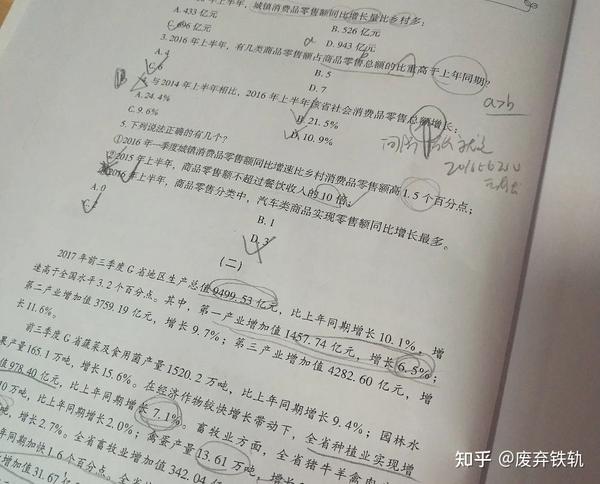 年上半年,城镇消费品零售额同比增长量比乡村多:
A. 433 亿元
B. 526 亿元
C. 696 亿元
D. 943 亿元
3. 2016 年上半年,有几类商品零售额占商品零售总额的比重高于上年同期?
a
A. 4
B. 5
C. 6
D. 7
a>b
与 2014 年上半年相比,2016 年上半年该省社会消费品零售总额增长:
A. 24.4%
B. 21.5%
C. 9.6%
D. 10.9%
5. 下列说法正确的有几个?
①2016 年一季度城镇消费品零售额同比增速比乡村消费品零售额高 1.5 个百分点;
②2015 年上半年,商品零售额不超过餐饮收入的 10 倍;
2016 年上半年,商品零售分类中,汽车类商品实现零售额同比增长最多。
A. 0
B. 1
C. 2
D. 3
(二)
2017 年前三季度 G 省地区生产总值 9499.53 亿元,比上年同期增长 10.1%,增
速高于全国水平 3.2 个百分点。其中,第一产业增加值 1457.74 亿元,增长 6.5%;
第二产业增加值 3759.19 亿元,增长 9.7%;第三产业增加值 4282.60 亿元,增
长 11.6%。
前三季度 G 省蔬菜及食用菌产量 1520.2 万吨,比上年同期增长 9.4%;园林水
果产量 165.1 万吨,增长 15.6%。在经济作物较快增长带动下,全省种植业实现增
值 978.40 亿元,比上年同期增长 7.1%。畜牧业方面,全省猪牛羊禽肉
10 万吨,比上年同期增长 2.0%;禽蛋产量 13.61 万吨,增长
,增长 2.7%。全省畜牧业增加值 342.04
年同期加快 1.6 个百分点。全省
增加值 31.67
知乎 @废弃铁轨